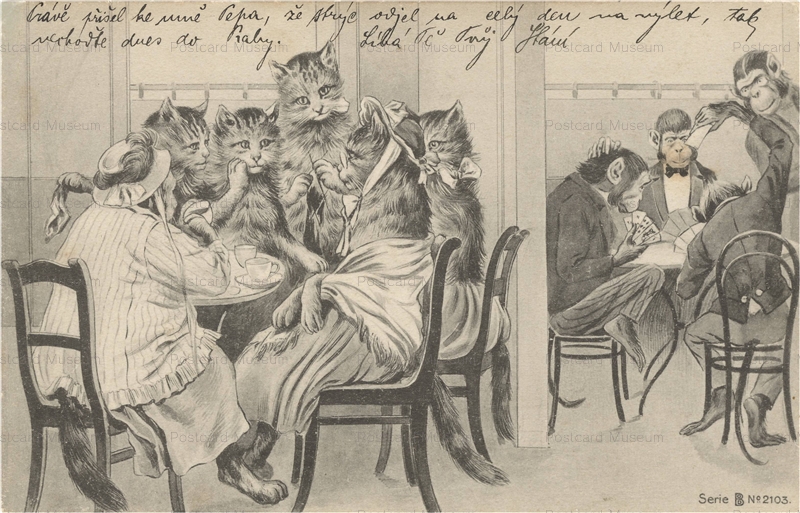 Právě přišel ke mně Pepa, že strýc odjel na celý den na výlet, tak
nechoďte dnes do Prahy. Líbá Č Tvůj
Serie BB No 2103.
Postcard Museum